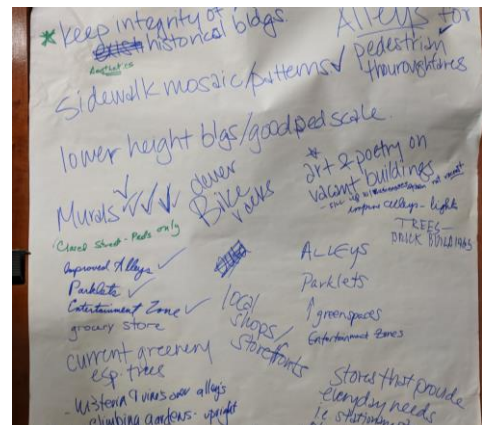 * keep integrity of
historical bldgs.
Aesthetics
Alleys for
pedestrian
thouroughfares
sidewalk mosaic/patterns ✓
lower height blgs/good ped scale.
Murals ✓✓✓✓
clever
Bike
racks
*
art & poetry on
vacant buildings
improve alleys - lights
TREES -
BRICK BUILDINGS
Closed Street - Peds only
Improved Alleys ✓
Parklets ✓
Entertainment Zone ✓
grocery store
current greenery
esp. trees
- wisteria & vines over alleys
climbing gardens - upright
local
shops/
storefronts
ALLEYS
Parklets
↑ greenspaces
Entertainment Zones
Stores that provide
everyday needs
i.e. stationary